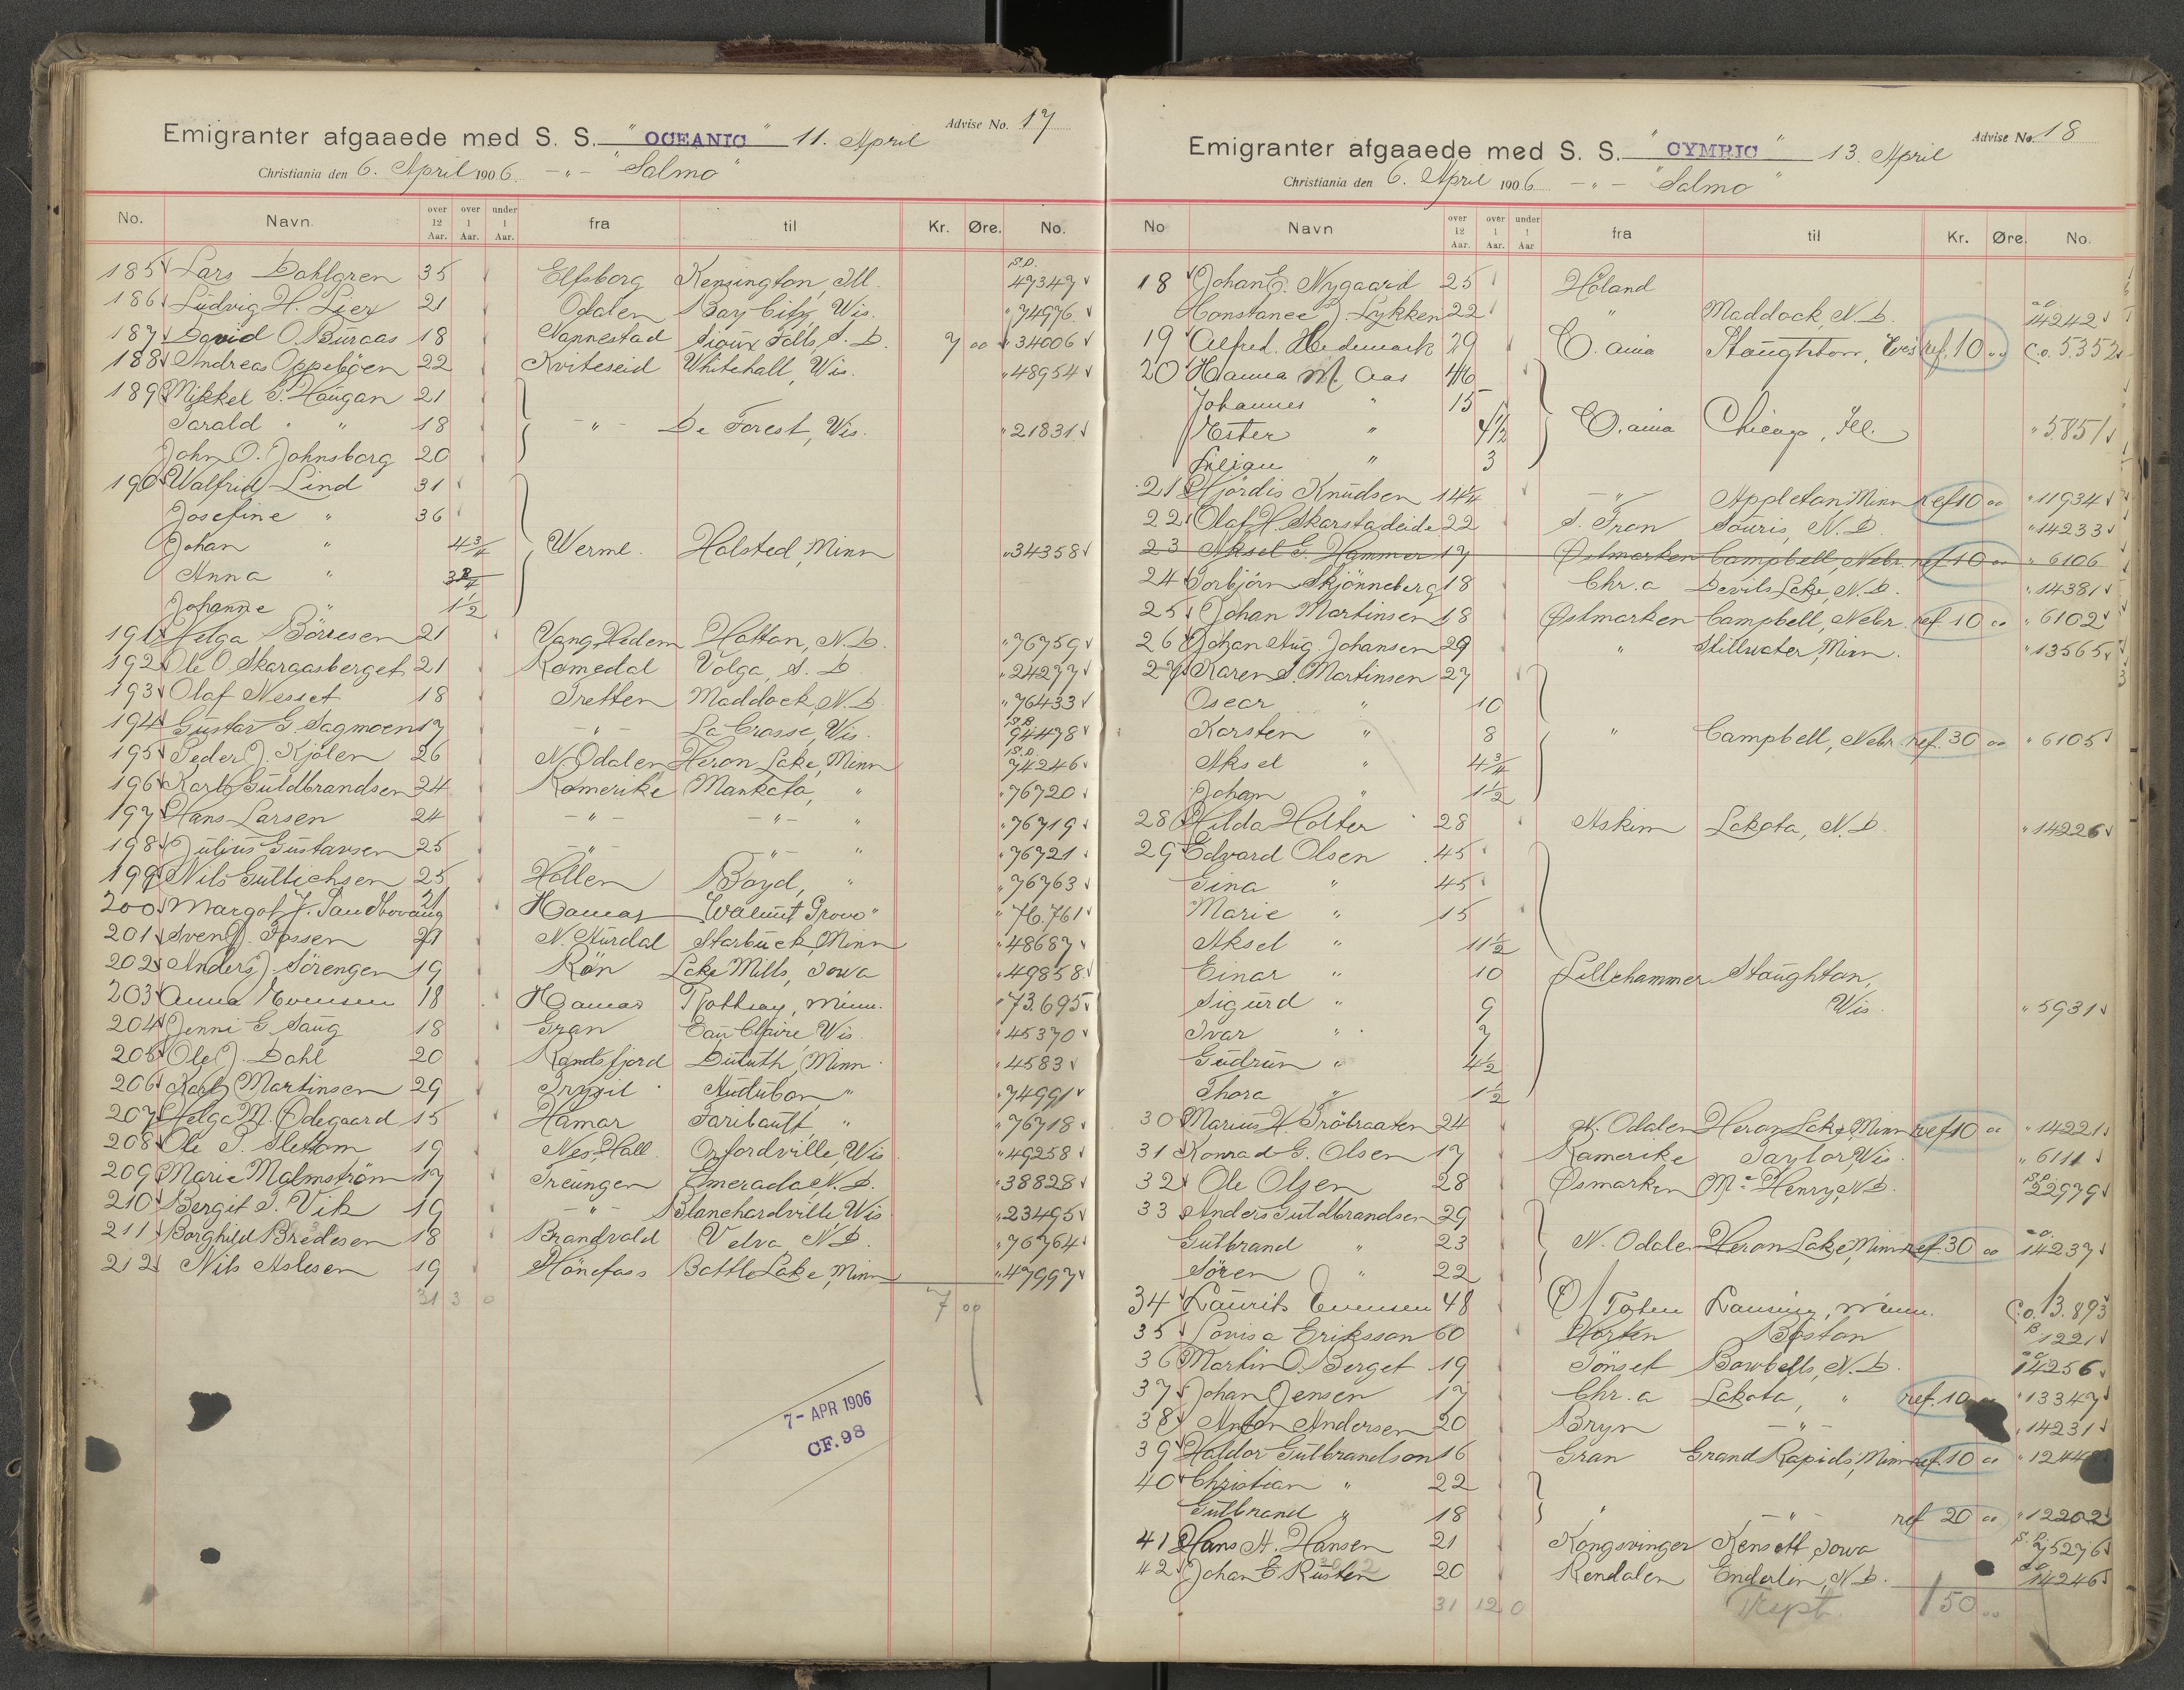 Advise No. 17
Emigranter afgaaede med S. S. "OCEANIC" 11. April
Christiania den 6. April 1906. -"- "Salmo"
No. Navn. over 12 Aar. over 1 Aar. under 1 Aar. fra til Kr. Øre. No.
185 Lars Dahlgren 35 Elfsborg Kensington, Ill. S.P. 47347
186 Ludvig H. Lier 21 Odalen Bay City, Wis. " 74976
187 David O. Buraas 18 Nannestad Sioux Falls, S. D. 7 00 " 34006
188 Andreas Oppebøen 22 Kviteseid Whitehall, Wis. " 48954
189 Mikkel T. Haugan 21
Tarald " " 18 -"- De Forest, Wis. " 21831
John O. Johnsborg 20
190 Walfrid Lind 31
Josefine " 36
Johan " 4 3/4 Werml. Halsted, Minn " 34358
Anna " 3
Johanne " 1 1/2
191 Helga Börresen 21 Vang Hedem Hatton, N. D. " 76759
192 Ole O. Skaraasberget 21 Romedal Volga, S. D " 24277
193 Olaf Nesset 18 Tretten Maddock, N. D. " 76433
194 Gustav G. Sagmoen 17 -"- La Crosse, Wis. S.P. 94478
195 Peder J. Kjölen 26 N. Odalen Heron Lake, Minn S.P. 74246
196 Karl Guldbrandsen 24 Romerike Mankato, " " 76720
197 Hans Larsen 24 -"- -"- " " 76719
198 Julius Gustavsen 25 -"- -"- " " 76721
199 Nils Gullichsen 25 Hollen Boyd, " " 76763
200 Margot J. Sandbovaug 21 Hamar Walnut Grove " " 76.761
201 Sven J. Fossen 21 N. Aurdal Starbuck, Minn " 48687
202 Anders J. Sörengen 19 Rön Lake Mills, Iowa " 49858
203 Anna Evensen 18 Hamar Rothsay, Minn. " 73.695
204 Jenni G. Haug 18 Gran Eau Claire, Wis " 45370
206 Ole J. Dahl 20 Randsfjord Duluth, Minn. " 4583
206 Karl Martinsen 29 Trysil Audubon, " " 74991
207 Helga M. Ödegaard 15 Hamar Faribault " " 76718
208 Ole P. Slettom 19 Nes, Hall. Orfordville, Wis " 49258
209 Marie Malmström 17 Treungen Emerado, N. D. " 38828
210 Bergit S. Vik 19 -"- Blanchardville Wis " 23495
211 Borghild Bredesen 18 Brandvold Velva N. D. " 76764
212 Nils Aslesen 19 Hönefoss Battle Lake, Minn " 47997
31 3 0 7 00
7- APR 1906
CF. 98
Advise No. 18
Emigranter afgaaede med S. S. "CYMRIC" 13. April
Christiania den 6. April 1906. -"- "Salmo"
No Navn over 12 Aar. over 1 Aar. under 1 Aar fra til Kr. Øre. No.
18 Johan E. Nygaard 25 Höland
Constance J. Lykken 22 " Maddock, N. D. 14242
19 Alfred Hedemark 29 C. ania Staughton, Wis ref. 10 00 C.o. 5352
20 Hanna M. Aas 46
Johannes " 15
Ester " 4 1/2 C. ania Chicago, Ill. " 5851
" 3
21 Hjördis Knudsen 14 1/4 -"- Appleton Minn ref 10 00 " 11934
22 Olaf H. Skarstadeide 22 S. Fron Souris, N. D. " 14233
23 Aksel G. Hammer 17 Østmarken Campbell, Nebr. ref. 10 00 " 6106
24 Torbjörn Skjönneberg 18 Chr.a Devils Lake, N. D. " 14381
25 Johan Martinsen 18 Østmarken Campbell, Nebr. ref 10 00 " 6102
26 Johan Aug. Johansen 29 " Stillwater, Minn. " 13565
27 Karen S. Martinsen 27
Oscar " 10
Karsten " 8 " Campbell, Nebr. ref. 30 00 " 6105
Aksel " 4 3/4
Johan " 1 1/2
28 Hilda Holter 28 Askim Lakota, N. D. " 14226
29 Edvard Olsen 45
Gina " 45
Marie " 15
Aksel " 11 1/2
Einar " 10 Lillehammer Staughton,
Sigurd " 9 Wis. " 5931
Ivar " 7
Gudrun " 4 1/2
Thora " 1 1/2
30 Marius H. Fröbraaten 24 N. Odalen Heron Lake, Minn ref 10 00 " 14221
31 Konrad G. Olsen 17 Romerike Taylor, Wis. " 6111
32 Ole Olsen 28 Øsmarken Mc Henry, N. D. S.P. 22979
33 Anders Guldbrandsen 29
Gulbrand " 23 N. Odalen Heron Lake, Minn ref. 30 00 14237
Sören " 22
34 Laurits Evensen 48 Ø/ Toten Lansing, Minn. C.o. 13.893
35 Lovisa Eriksson 60 Horten Boston B 1221
36 Martin O. Berget 19 Tönset Bowbells, N. D. 14256
37 Johan Jensen 17 Chr.a Lakota, " ref. 10 00 " 13347
38 Anton Andersen 20 Bryn -"- " 14231
39 Haldor Gulbrandson 16 Gran Grand Rapids, Minn ref. 10 00 " 1244
40 Christian " 22
Gulbrand " 18 " -"- ref 20 00 " 12202
41 Hans A. Hansen 21 Kongsvinger Kensett Iowa S.P. 75276
42 Johan E. Rusten 20 Rendalen Enderlin, N. D. 14246
31 12 0 150 00